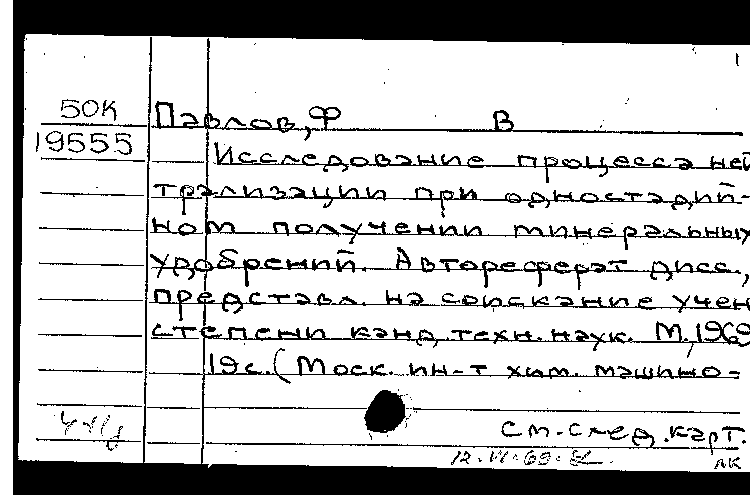 50К
19555
Павлов, Ф В
Исследование процесса ней
трализации при одностадий-
ном получении минеральных
удобрений. Автореферат дисс.,
представл. на соискание учен
степени канд. техн. наук. М., 1969
19 с. (Моск. ин-т хим. машино-
см. след. карт.
12.VI.69.
ЛК